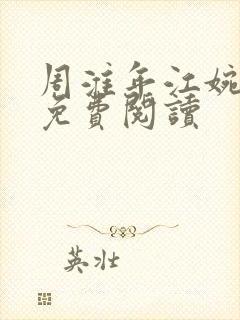 周淮年江婉
免費閱讀
英壯